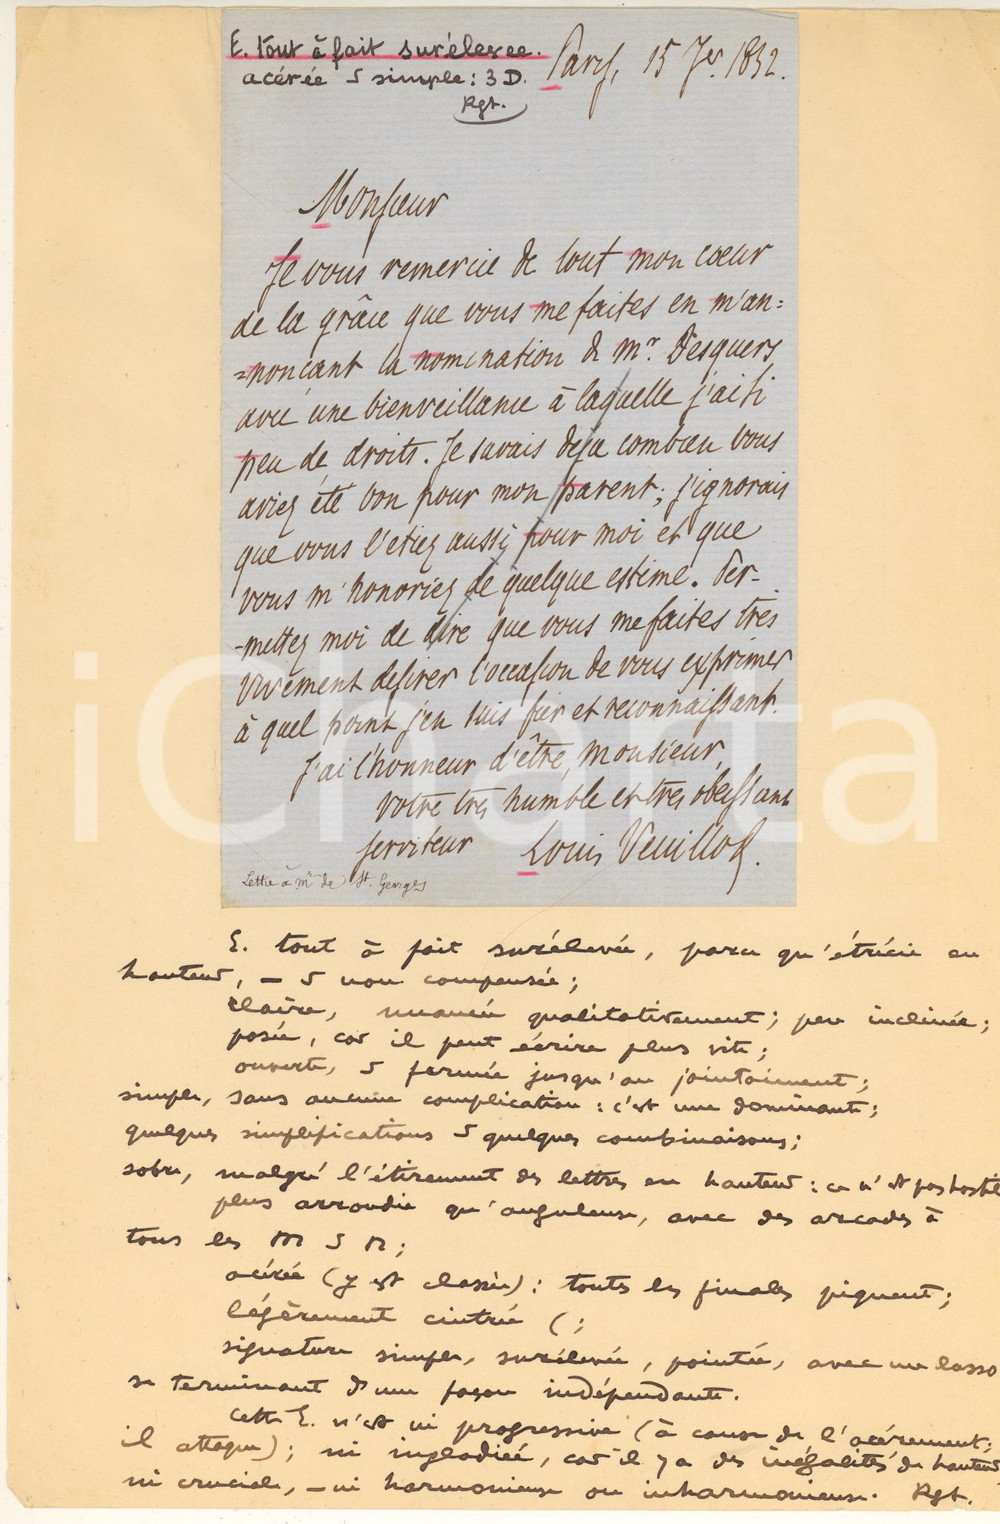 E. tout à fait surélevée.
acérée & simple : 3 D.
Rgt.
Paris, 15 Jer. 1852.
Monsieur
Je vous remercie de tout mon cœur
de la grâce que vous me faites en m'an=
=nonçant la nomination de Mr. Desquers
avec une bienveillance à laquelle j'ai si
peu de droits. Je savais déja combien vous
aviez été bon pour mon parent ; j'ignorais
que vous l'étiez aussi pour moi et que
vous m'honoriez de quelque estime. Per-
-mettez moi de dire que vous me faites très
vivement désirer l'occasion de vous exprimer
à quel point j'en suis fier et reconnaissant.
J'ai l'honneur d'être, Monsieur,
votre très humble et très obéissant
serviteur Louis Veuillot.
Lettre à Mr de St. Georges
E. tout à fait surélevée, parce qu'étrécie en
hauteur, — & non compensée ;
claire, nuancée qualitativement ; peu inclinée ;
posée, car il peut écrire plus vite ;
ouverte, & fermée jusqu'au jointoiement ;
simple, sans aucune complication : c'est une dominante ;
quelques simplifications & quelques combinaisons ;
sobre, malgré l'étirement des lettres en hauteur : ce n'est pas hostile
plus arrondie qu'anguleuse, avec des arcades à
tous les M & N ;
acérée (y est classée) : toutes les finales piquent ;
légèrement cintrée ( ;
signature simple, surélevée, pointée, avec un lasso
se terminant d'une façon indépendante.
cette E. n'est ni progressive (à cause de l'acérement ;
il attaque) ; ni inégladiée, car il y a des inégalités de hauteur
ni cruciale, — ni harmonieuse ou inharmonieuse. Rgt.
iCharta